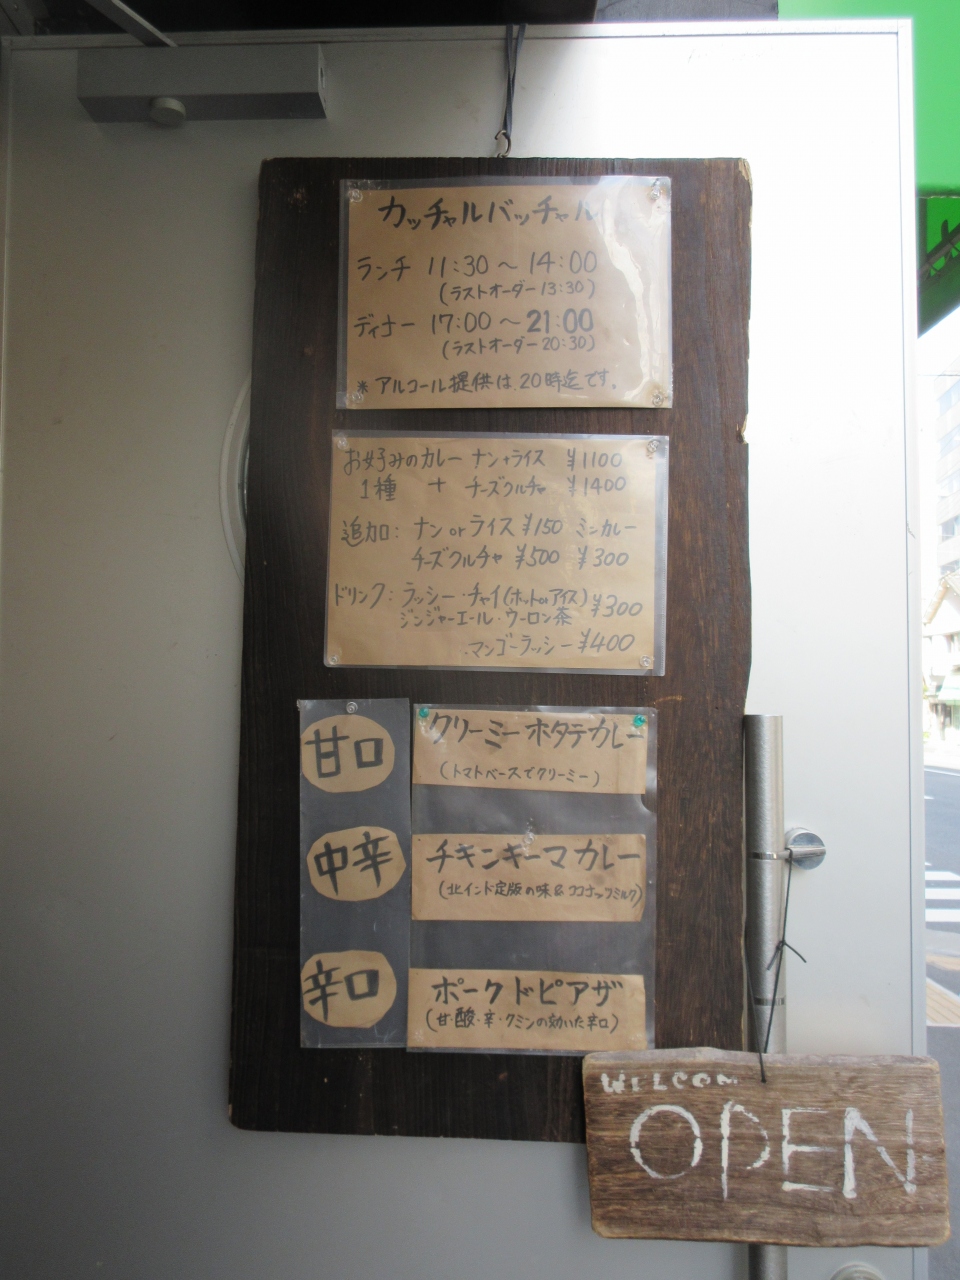 カッチャルバッチャル
ランチ 11:30〜14:00
(ラストオーダー13:30)
ディナー 17:00〜21:00
(ラストオーダー20:30)
※アルコール提供は、20時迄です。
お好みのカレー ナン+ライス ¥1100
1種 + チーズクルチャ ¥1400
追加: ナン or ライス ¥150 ミニカレー
チーズクルチャ ¥500 ¥300
ドリンク: ラッシー・チャイ(ホット or アイス) ¥300
ジンジャーエール・ウーロン茶
・マンゴーラッシー ¥400
甘口 クリーミーホタテカレー
(トマトベースでクリーミー)
中辛 チキンキーマカレー
(北インド定版の味&ココナッツミルク)
辛口 ポークドピアザ
(甘・酸・辛・クミンの効いた辛口)
WELCOM
OPEN